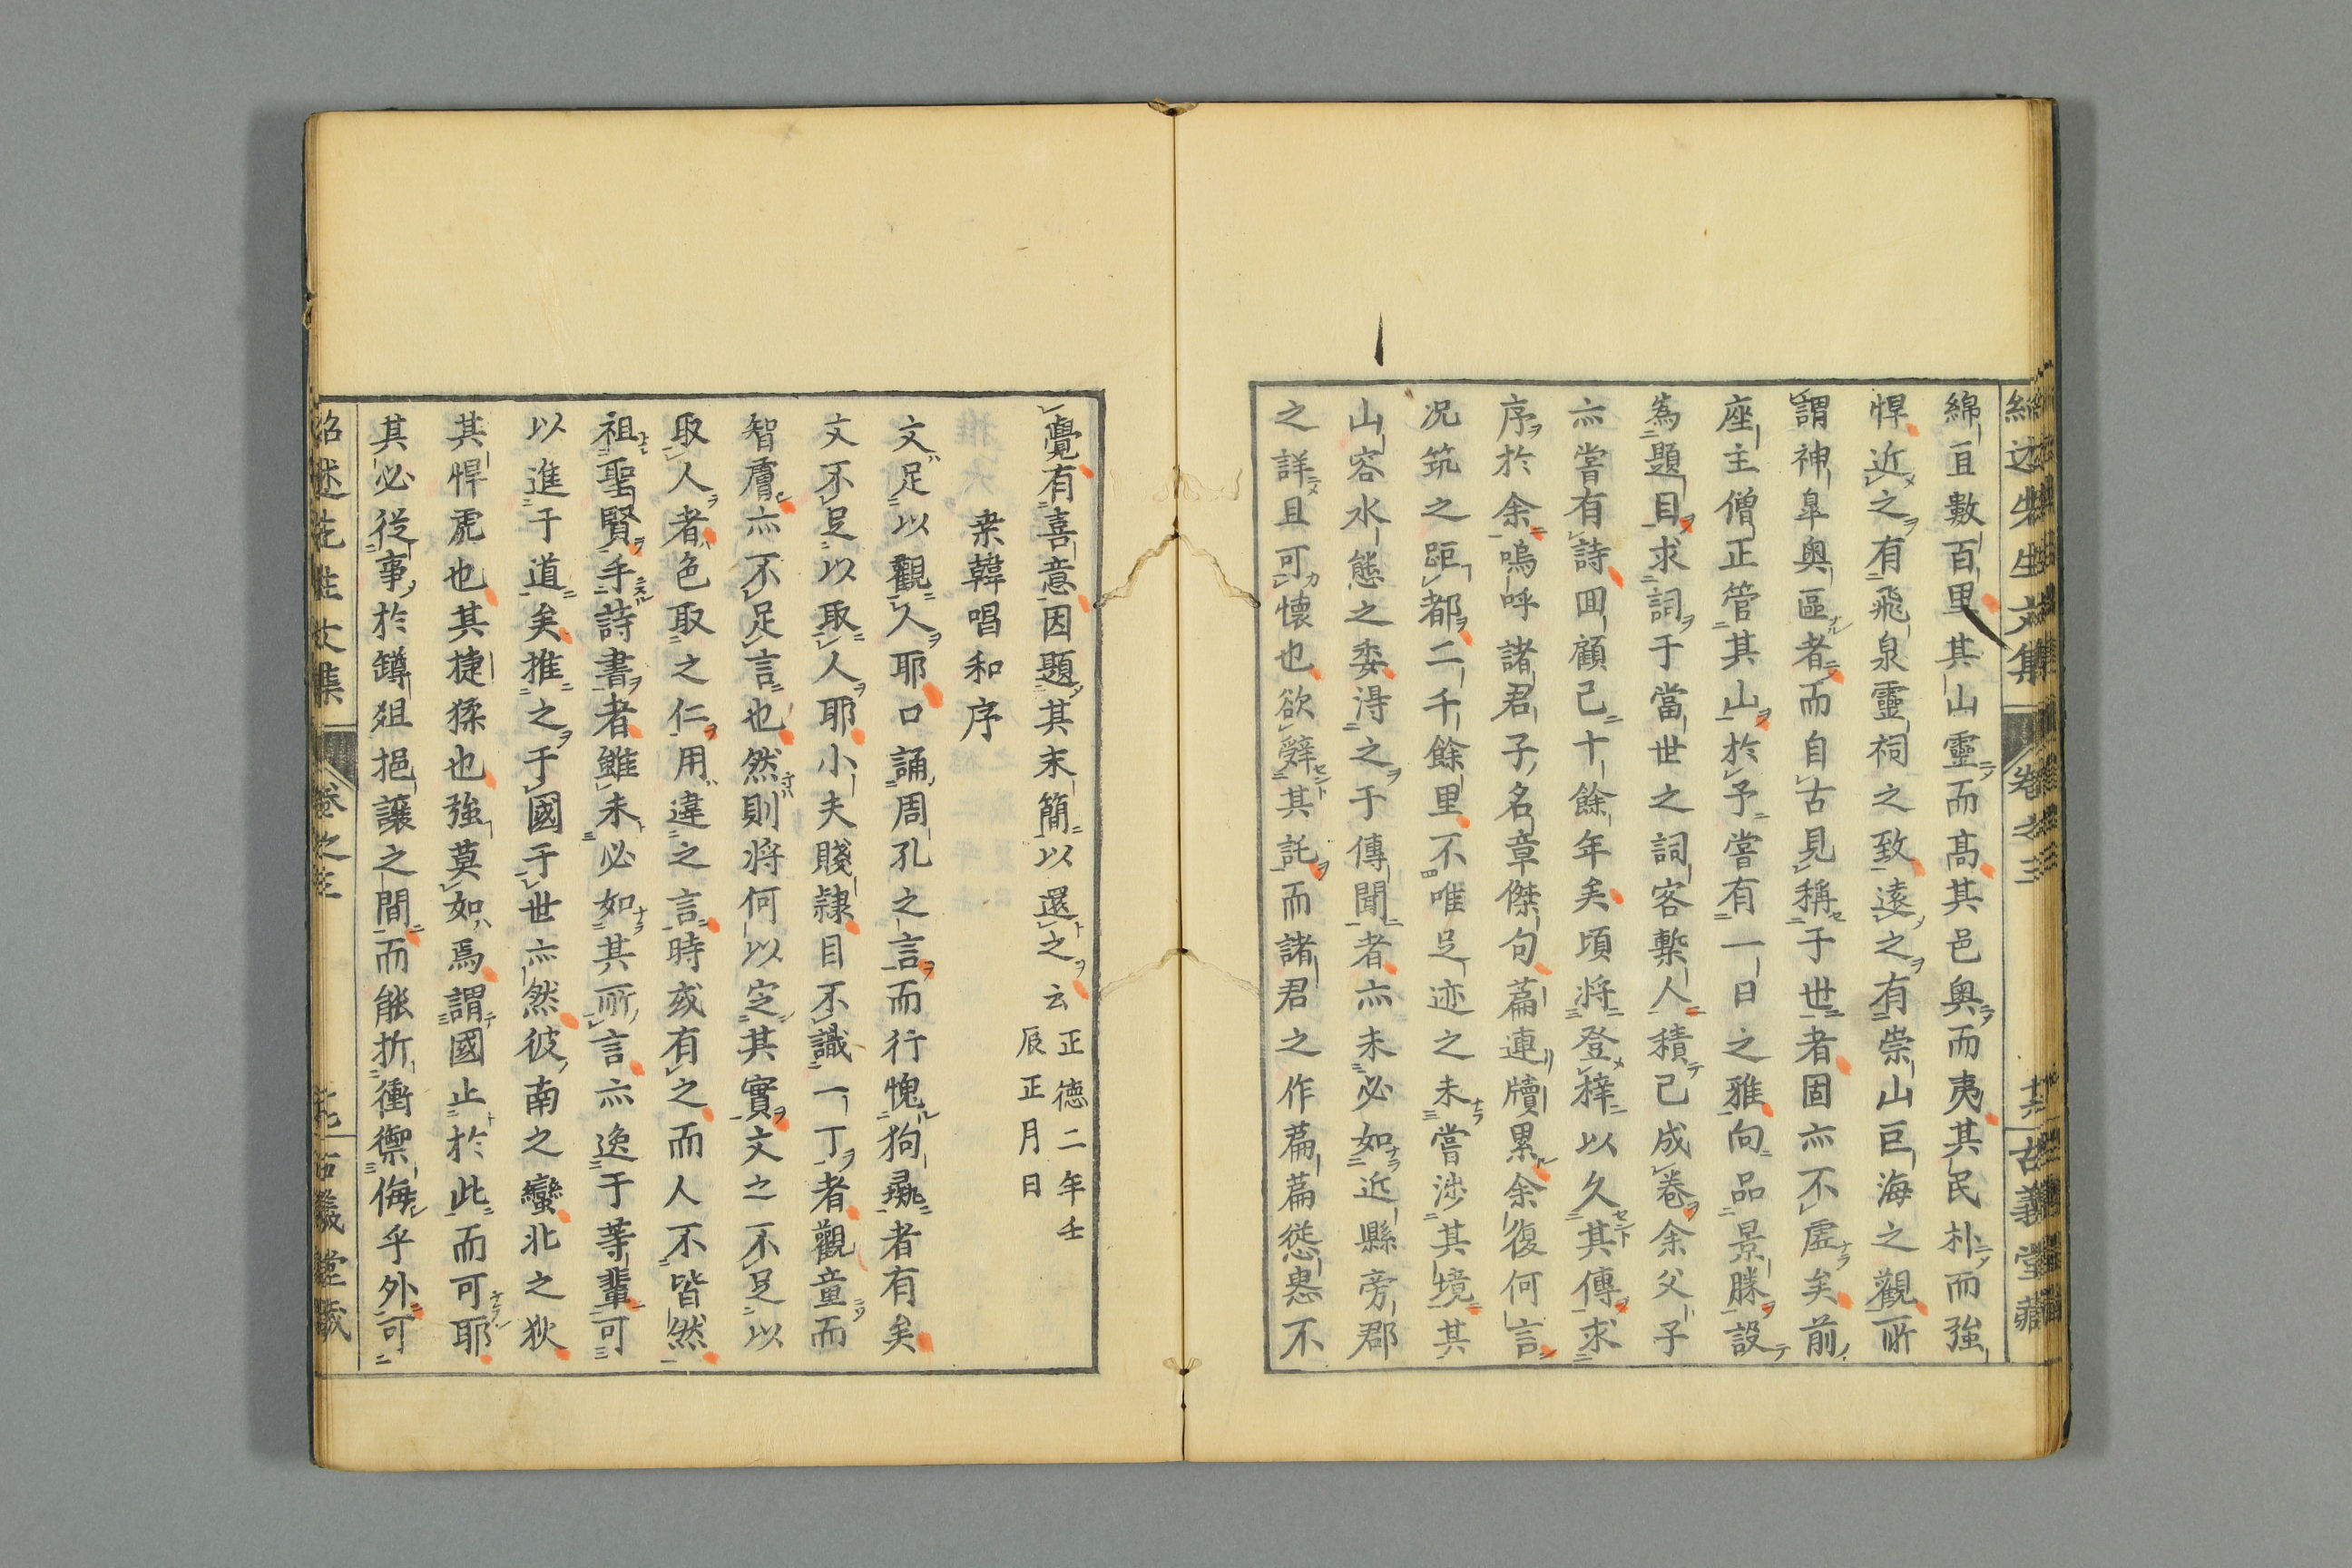 紹述先生文集 卷之三 十六 古義堂藏
綿亙數百里其山靈而高其邑奥而夷其民朴而強
悍近之有飛泉靈祠之致遠之有崇山巨海之觀所
謂神皐奥區者而自古見稱于世者固亦不虚矣前
座主僧正管其山於予嘗有一日之雅向品景勝設
為題目求詞于當世之詞客槧人積已成卷余父子
亦嘗有詩囬顧已十餘年矣頃將登梓以久其傳求
序於余嗚呼諸君子名章傑句篇連牘累余復何言
况筑之距都二千餘里不唯足迹之未嘗渉其境其
山容水態之委淂之于傳聞者亦未必如近縣旁郡
之詳且可懷也欲辭其託而諸君之作篇篇慫惥不
覺有喜意因題其末簡以還之云 正徳二年壬
辰正月日
桒韓唱和序
文足以觀人耶口誦周孔之言而行愧狗彘者有矣
文不足以取人耶小夫賤隷目不識一丁者觀童而
智膚亦不足言也然則将何以定其實文之不足以
取人者色取之仁用違之言時或有之而人不皆然
祖聖賢手詩書者雖未必如其所言亦逸于等輩可
以進于道矣推之于國于世亦然彼南之蠻北之狄
其悍虎也其捷猱也強莫如焉謂國止於此而可耶
其必從事於罇俎挹讓之間而能折衝禦侮乎外可
紹述先生文集 卷之三 古義堂藏